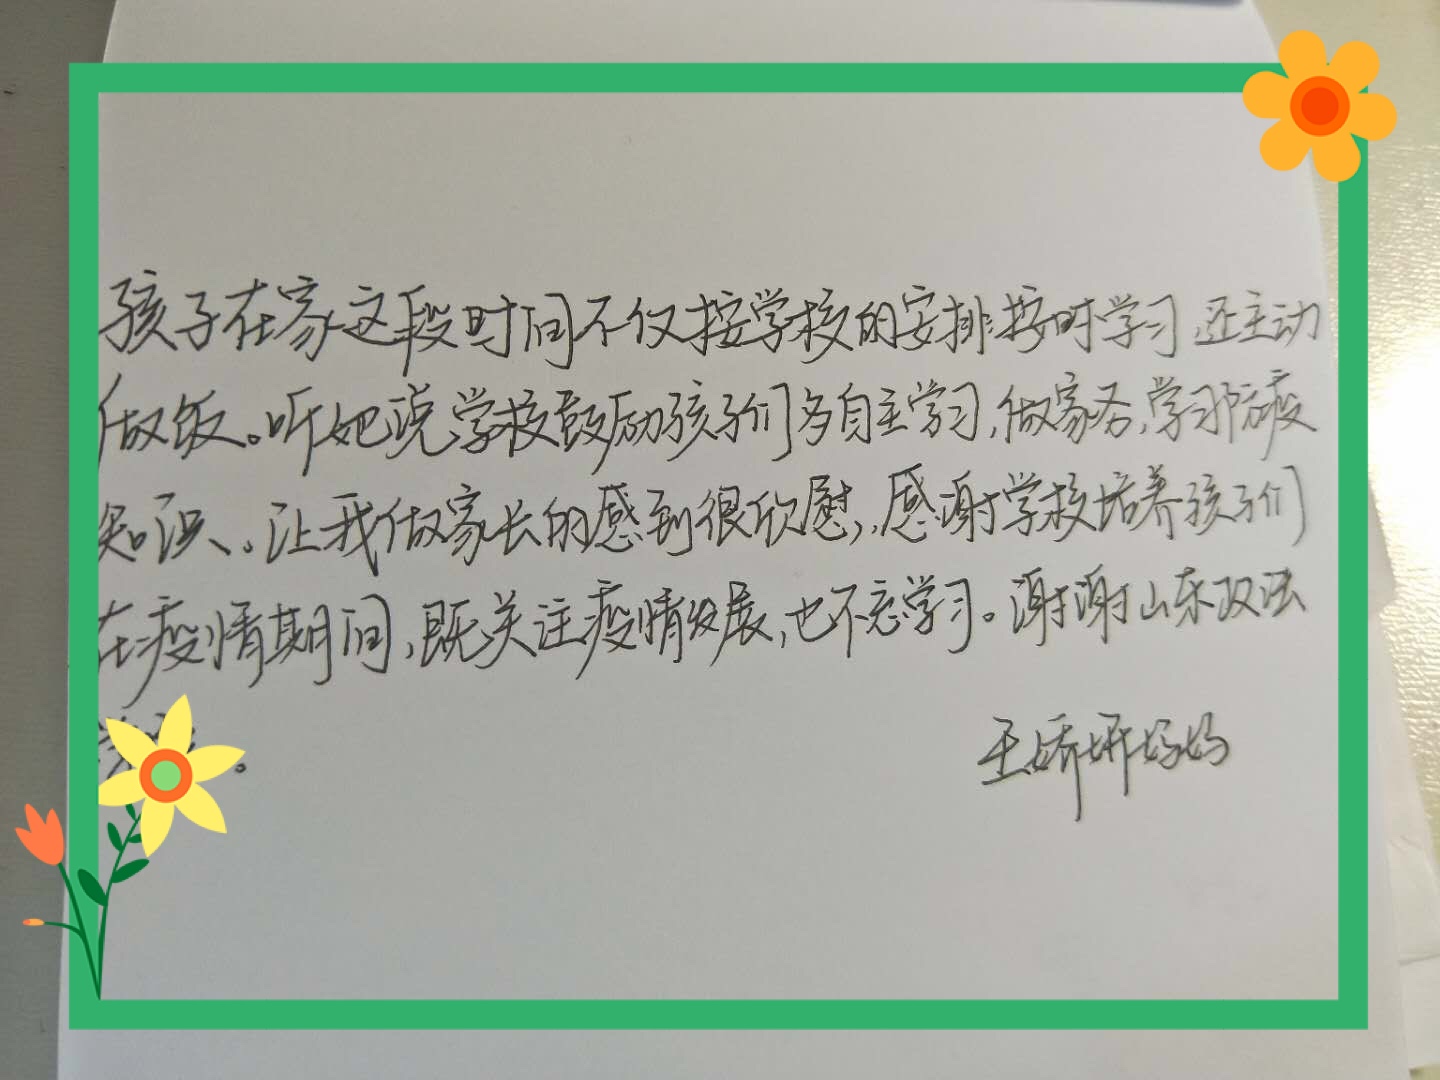 孩子在家这段时间不仅按学校的安排按时学习,还主动
做饭。听她说,学校鼓励孩子们多自主学习,做家务,学习防疫
知识、。让我做家长的感到很欣慰,感谢学校培养孩子们
在疫情期间,既关注疫情发展,也不忘学习。谢谢山东政法
。
王娇妍妈妈